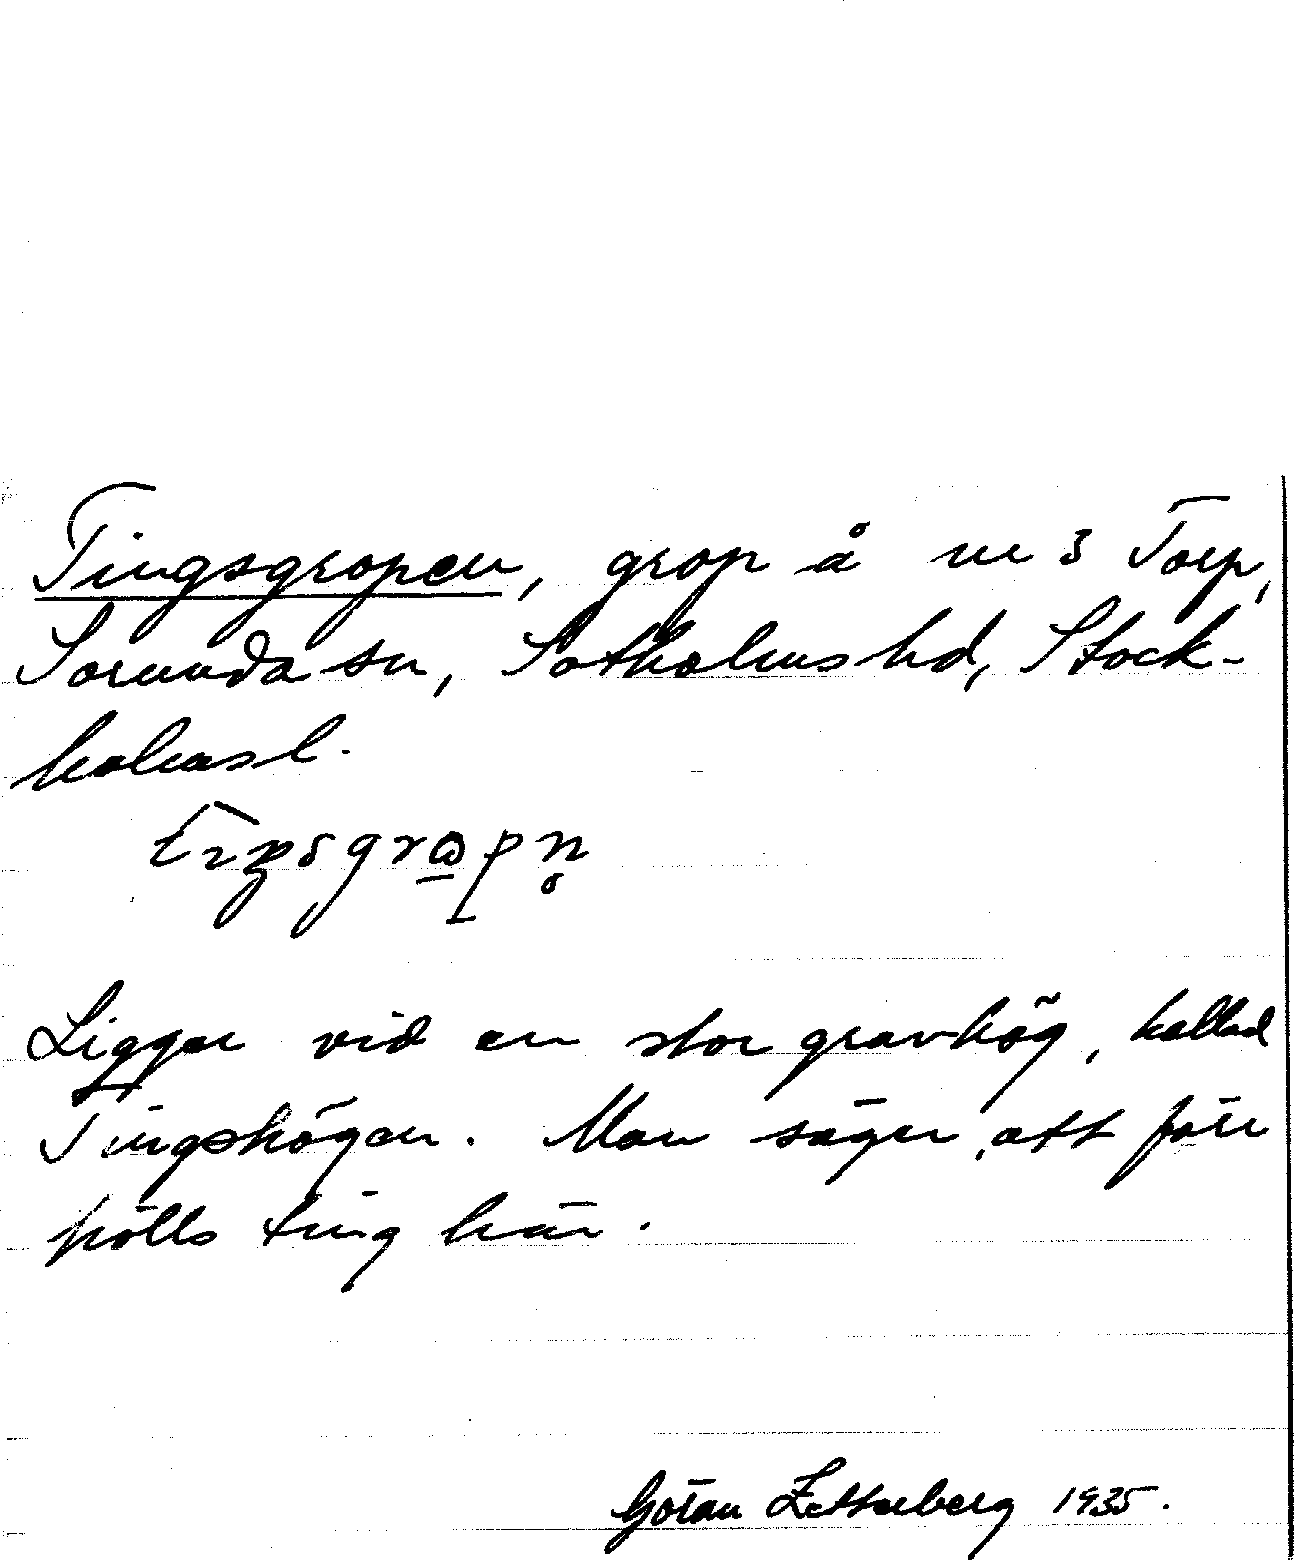 Tingsgropen, grop å nr 3 Torp,
Sorunda sn, Sotholms hd, Stock-
holmsl.
Ligger vid en stor gravhög, kallad
Tingshögen. Man säger, att förr
hölls ting här.
Göran Zetterberg 1935.